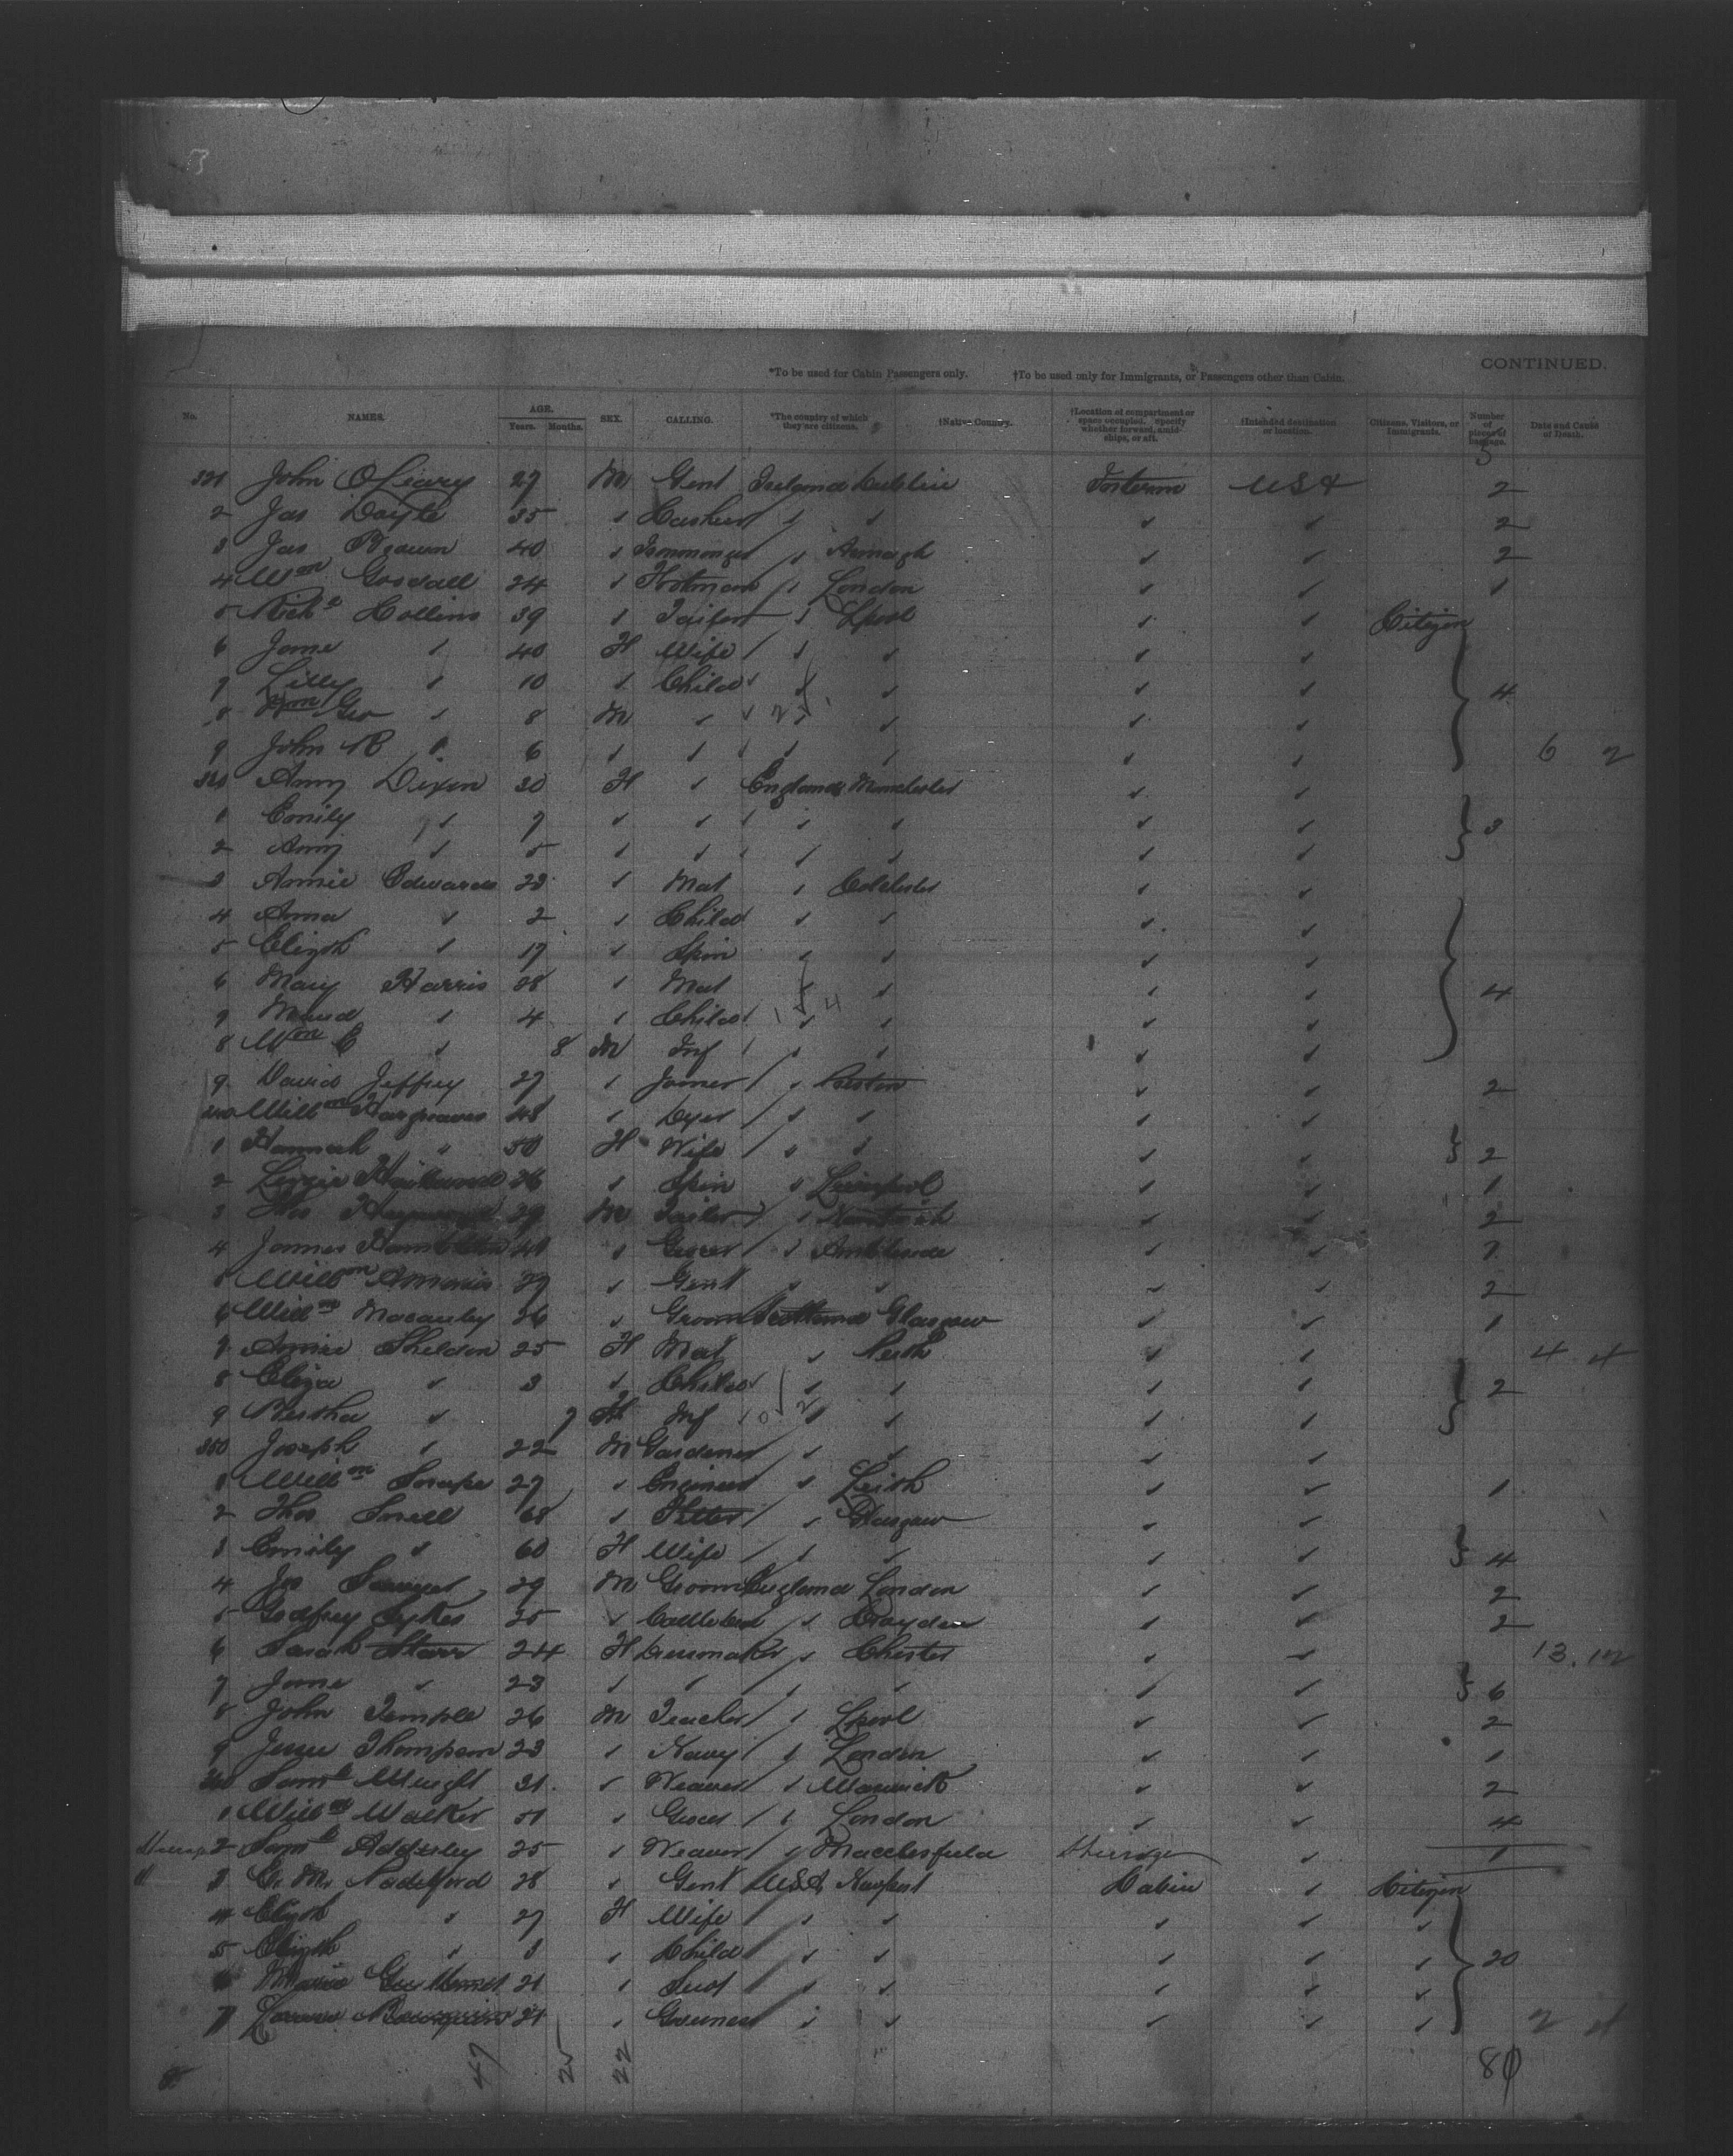 CONTINUED.
*To be used for Cabin Passengers only. †To be used only for Immigrants, or Passengers other than Cabin.
No. NAMES. AGE. Years. Months. SEX. CALLING. *The country of which they are citizens. †Native Country. †Location of compartment or space occupied. Specify whether forward, amidships, or aft. †Intended destination or location. Citizens, Visitors, or Immigrants. Number of pieces of baggage. Date and Cause of Death.
321 John OLeary 27 M Gent Ireland Dublin USA 2
2 Jas Doyle 35 ✓ ✓ ✓ ✓ ✓ 2
3 Jas Brown 40 ✓ Ironmonger ✓ Armagh ✓ ✓ 2
4 Wm Goodall 24 ✓ Footman ✓ London ✓ ✓ 1
5 Richd Collins 39 ✓ ✓ Lpool ✓ ✓ Citizen
6 Jane ✓ 40 F Wife ✓ ✓ ✓ ✓
7 Lilly ✓ 10 ✓ Child ✓ ✓ ✓ ✓ 4
8 Wm Geo ✓ 8 M ✓ ✓ ✓ ✓ ✓
9 John R ✓ 6 ✓ ✓ ✓ ✓ ✓ ✓ 6 2
330 Amy Dixon 30 F ✓ England Manchester ✓ ✓
1 Emily ✓ 7 ✓ ✓ ✓ ✓ ✓ ✓ 3
2 Amy ✓ 5 ✓ ✓ ✓ ✓ ✓ ✓
3 Annie Edwards 23 ✓ Mat ✓ Colchester ✓ ✓
4 Anna ✓ 2 ✓ Child ✓ ✓ ✓ ✓
5 Elizth ✓ 17 ✓ Spin ✓ ✓ ✓ ✓
6 Mary Harris 28 ✓ Mat ✓ ✓ ✓ ✓ 4
7 Maud ✓ 4 ✓ Child ✓ ✓ ✓ ✓
8 Wm C ✓ 8 M Inf ✓ ✓ ✓ ✓
9 David Jeffrey 27 ✓ Joiner ✓ Preston ✓ ✓ 2
340 Willm Hargreaves 48 ✓ Dyer ✓ ✓ ✓ ✓
1 Hannah " 50 F Wife ✓ ✓ ✓ ✓ 2
2 Lizzie 26 ✓ Spin ✓ Liverpool ✓ ✓ 1
3 Thos 29 M Tailor ✓ Nantwich ✓ ✓ 2
4 James Hambleton ✓ Grocer ✓ Ambleside ✓ ✓
5 Willm 27 ✓ Gent ✓ ✓ ✓ ✓ 2
6 Willm Macauley 26 ✓ Groom Scotland Glasgow ✓ ✓ 1
7 Annie Sheldon 25 F Mat ✓ Perth ✓ ✓ 4 4
8 Eliza ✓ 3 ✓ Child ✓ ✓ ✓ ✓ 2
9 Bertha ✓ 7 F Inf ✓ ✓ ✓ ✓
350 Joseph ✓ 22 M Gardener ✓ ✓ ✓ ✓
1 Willm Snape 27 ✓ Engineer ✓ Leith ✓ ✓ 1
2 Thos Snell 68 ✓ Fitter ✓ Glasgow ✓ ✓
3 Emily ✓ 60 F Wife ✓ ✓ ✓ ✓ 4
4 Jas 29 M Groom England London ✓ ✓ 2
5 Godfrey Sykes 25 ✓ ✓ Croydon ✓ ✓ 2
6 Sarah Starr 24 F Dressmaker ✓ Chester ✓ ✓ 13.12
7 Jane ✓ 23 ✓ ✓ ✓ ✓ ✓ ✓ 6
8 John Temple 26 M Teacher ✓ Lpool ✓ ✓ 2
9 Jesse Thompson 23 ✓ Navvy ✓ London ✓ ✓ 1
360 Saml Wright 31 ✓ Weaver ✓ Warwick ✓ ✓ 2
1 Willm Walker 51 ✓ Grocer ✓ London ✓ ✓ 4
Steerage 2 Saml Addsley 25 ✓ Weaver ✓ Macclesfield Steerage ✓ 1
3 28 ✓ Gent USA Newport Cabin ✓ Citizen
4 Elizth ✓ 27 F Wife ✓ ✓ ✓ ✓ ✓
5 Elizth ✓ 3 ✓ Child ✓ ✓ ✓ ✓ ✓ 20
6 21 ✓ Sert ✓ ✓ ✓ ✓ ✓
7 21 ✓ Governess ✓ ✓ ✓ ✓ ✓
47 25 22 80